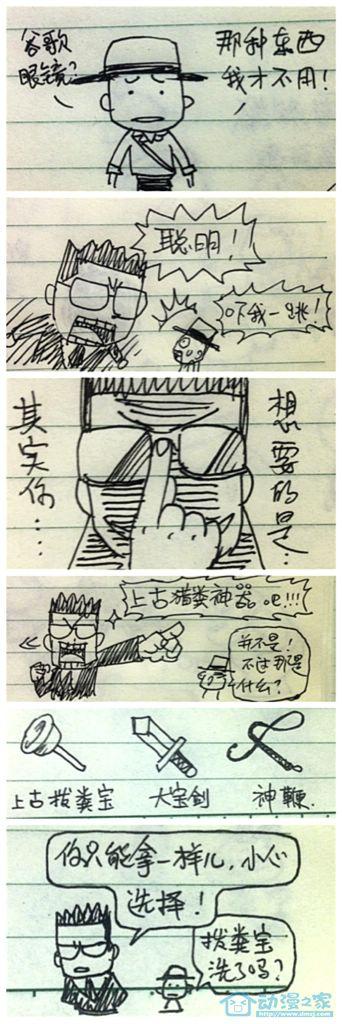 谷歌
眼镜?
那种东西
我才不用!
聪明!!
吓我一跳!
其实你...
想要的是...
上古猎粪神器吧!!!
并不是!
不过那是
什么?
上古拨粪宝
大宝剑
神鞭.
你只能拿一样儿,小心
选择!
拨粪宝
洗了吗?
动漫之家
http://www.dmzj.com